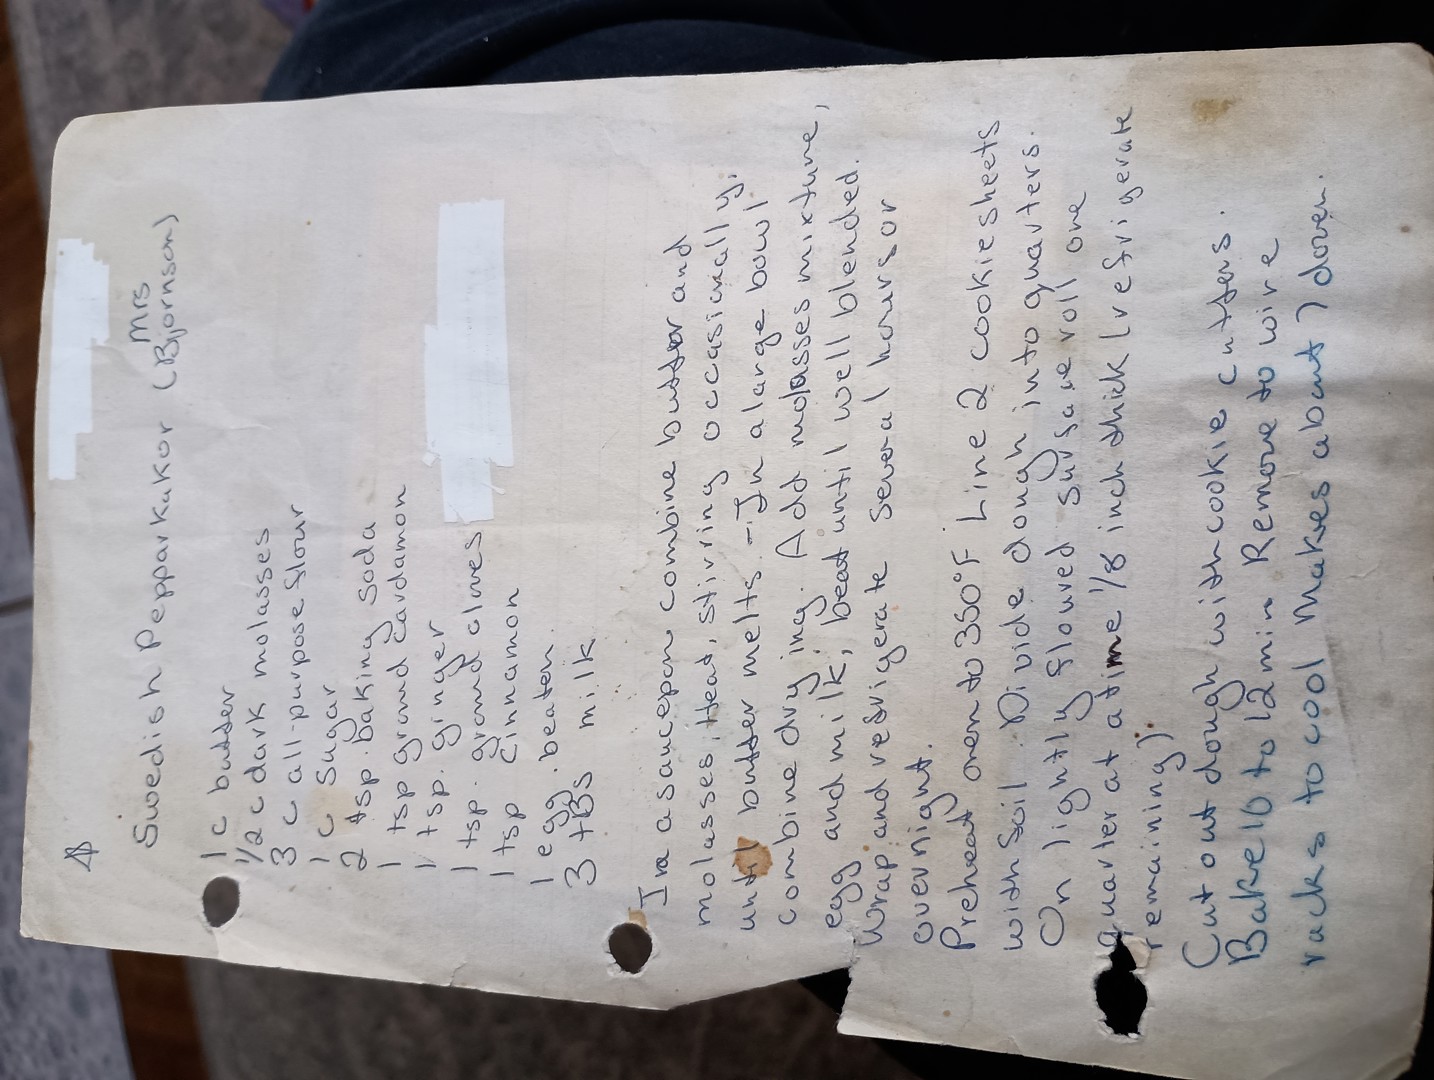 Mrs
Swedish Pepparkakor (Bjornson)
1 c butter
1/2 c dark molasses
3 c all-purpose flour
1 c sugar
2 tsp. baking soda
1 tsp ground cardamon
1 tsp. ginger
1 tsp. ground cloves
1 tsp cinnamon
1 egg. beaten.
3 tBs milk
In a saucepan combine butter and
molasses, Heat, stirring occasionally,
until butter melts. - In a large bowl
combine dry ing. Add molasses mixture,
egg and milk, beat until well blended.
Wrap and refrigerate several hours or
overnight.
Preheat oven to 350°F Line 2 cookie sheets
with foil. Divide dough into quarters.
On lightly floured surface roll one
quarter at a time 1/8 inch thick (refrigerate
remaining)
Cut out dough with cookie cutters.
Bake 10 to 12 min Remove to wire
racks to cool Makes about 7 dozen.